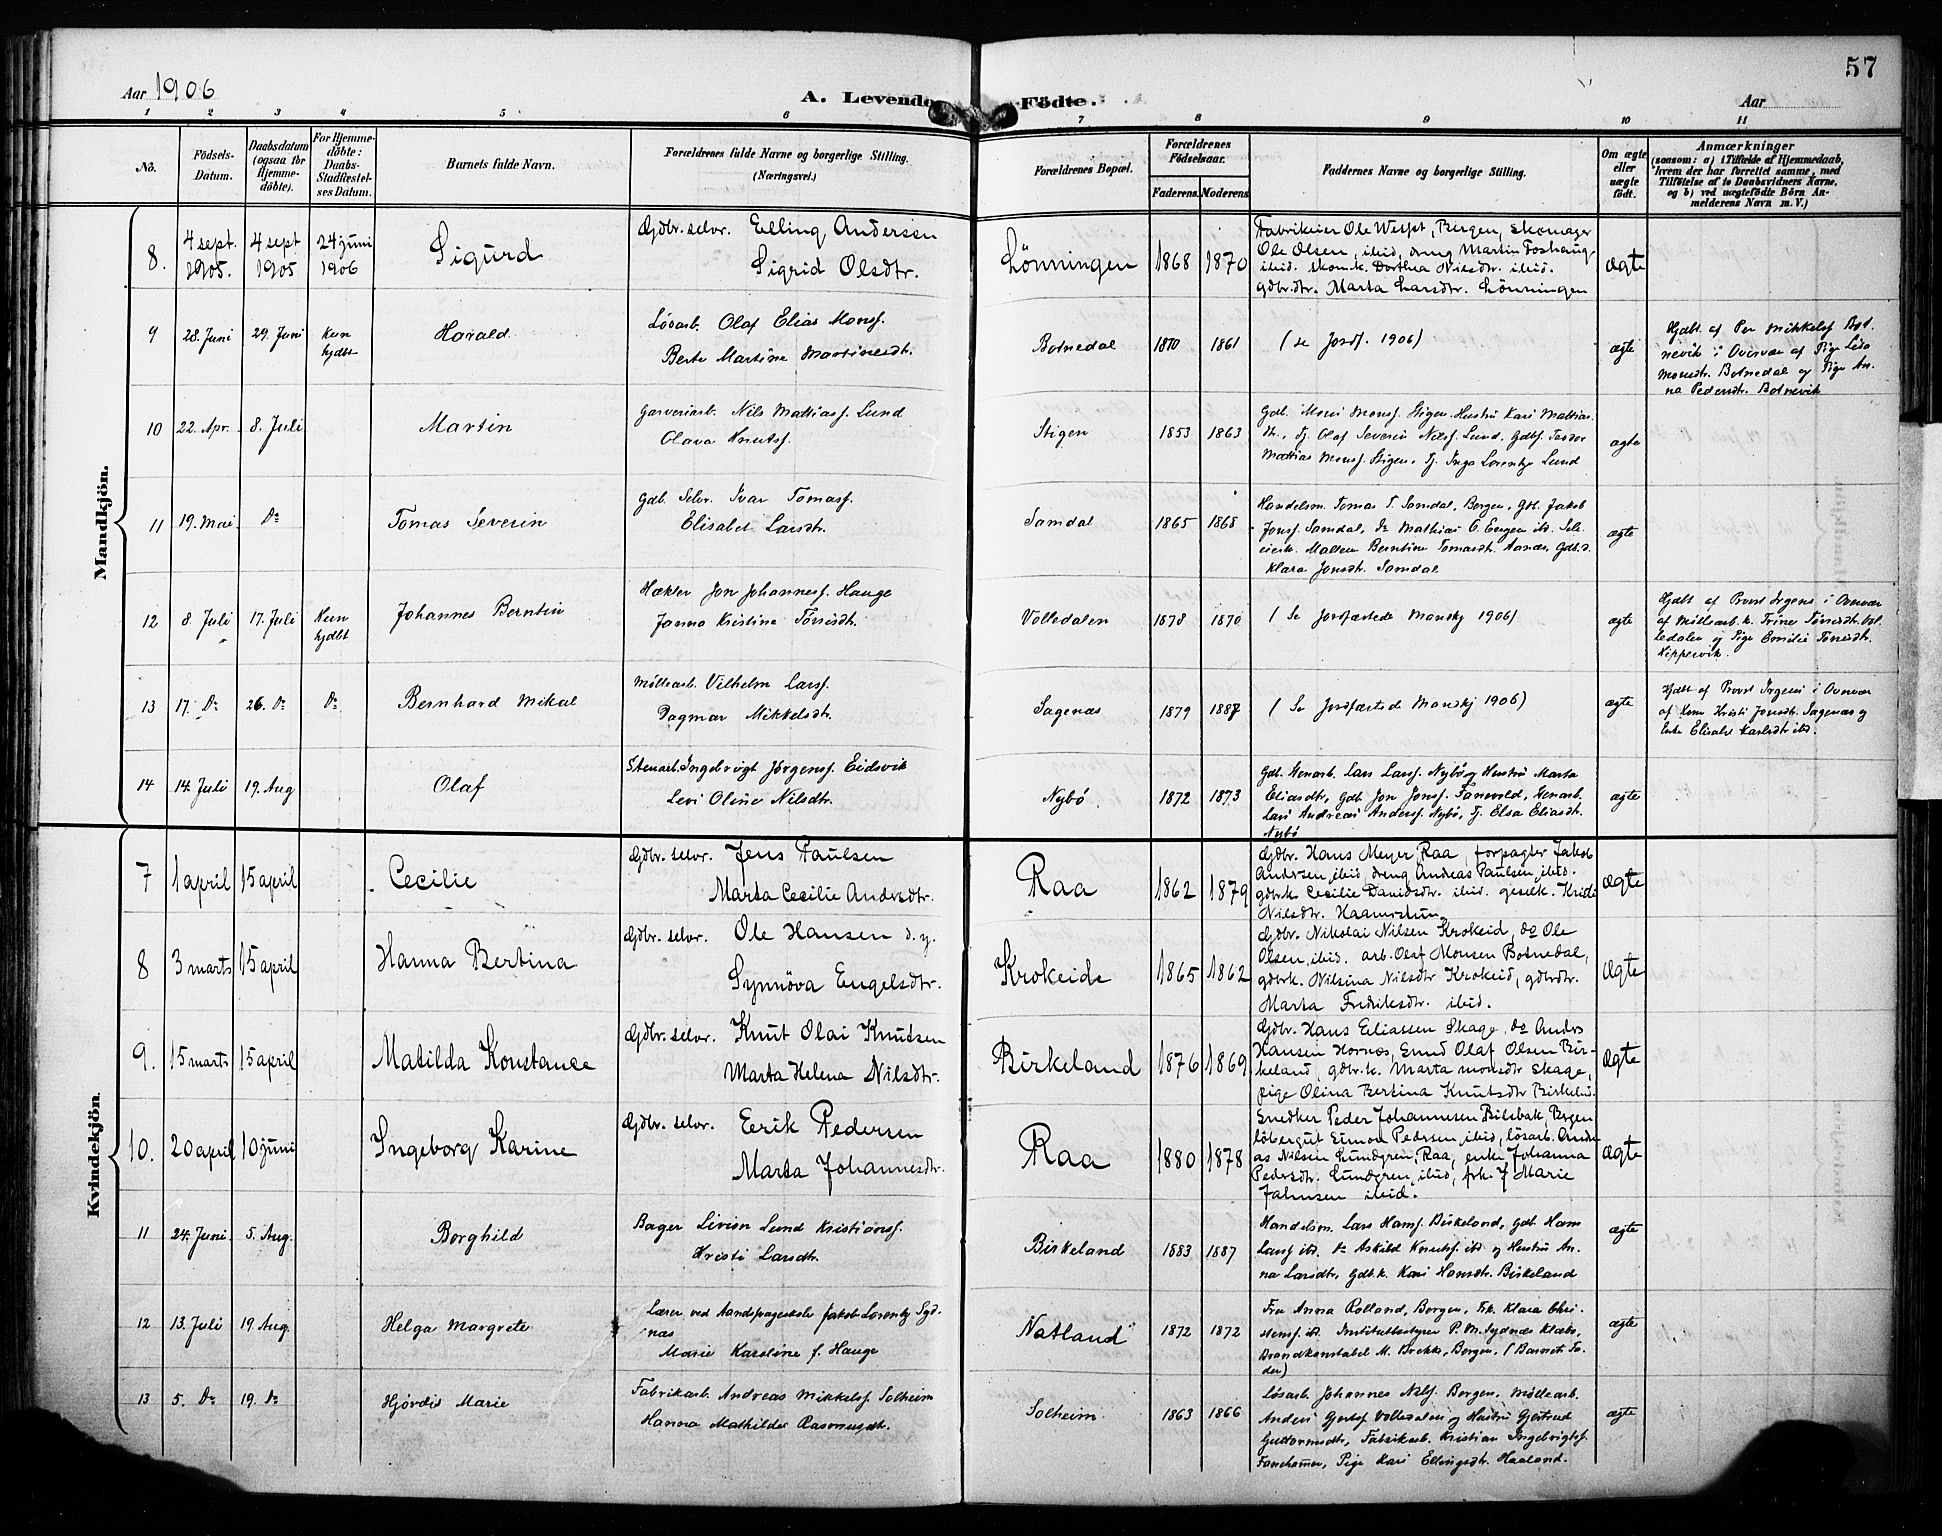 Aar 1906
A. Levende Födte.
57
Aar
1 2 3 4 5 6 7 8 9 10 11
No.
Födsels-Datum.
Daabsdatum (ogsaa for Hjemme-döbte).
For Hjemme-döbte: Daabs-Stadfæstel-ses Datum.
Barnets fulde Navn.
Forældrenes fulde Navne og borgerlige Stilling. (Næringsvei.)
Forældrenes Bopæl.
Forældrenes Födselsaar.
Faderens. Moderens.
Faddernes Navne og borgerlige Stilling.
Om ægte eller uægte födt.
Anmærkninger
(saasom: a) i Tilfælde af Hjemmedaab,
hvem der har forrettet samme, med
Tilföielse af to Daabsvidners Navne,
og b) ved uægtefödte Börn An-
melderens Navn m. V.)
Mandkjön.
8. 4 sept. 1905. 4 sept 1905 24 juni 1906 Sigurd
Gdbr. selv. Elling Andersen
Sigrid Olsdtr.
Lönningen 1868 1870
Ole Olsen, ibid, dreng Martin
ibid. Dorthea Nilsdtr. ibid.
gdbr.dtr. Marta Larsdtr. Lönningen
ægte
9 28. Juni 29. Juni Kun hjdbt Harald
Lösarb. Olaf Elias Monsf.
Berte Martine Martinusdt.
Botnedal 1870 1861 (se Jordf. 1906) ægte
Hjdbt. af Per Mikkelsf Bot-
nevik i Overvær af Pige Lisa
Monsdtr. Botnedal og Pige An-
na Pedersdtr. Botnevik
10 22. Apr. 8. Juli Martin
Garveriarb. Nils Mattiasf. Lund
Olava Knutsf.
Stigen 1853 1863
Gdb. Mons Monsf. Stigen. Hustru Kari Mattias-
dt., Tj. Olaf Severin Nilsf. Lund. Gdbsf. Teodor
Mattias Monsf. Stigen, Tj. Inga Lorentze Lund
ægte
11 19. Mai Do Tomas Severin
Gdb. Selv. Ivar Tomasf.
Elisabet Larsdtr.
Samdal 1865 1868
Handelsm. Tomas T. Samdal, Bergen, Gdb. Jakob
Jonsf. Samdal, Do Mathias
Berntine Tomasdt.
Klara Jonsdt. Samdal
ægte
12 8. Juli 17. Juli Kun hjdbt Johannes Berntin
Hækler Jon Johannesf. Hauge
Janna Kristine Tørrisdt.
Volledalen 1878 1870 (Se Jordfæstede Mandkj 1906) ægte
Hjdbt af Provst Irgens i Overvær
af Möllearb. k. Trine Tørrisdt. Vol-
ledalen og Pige Emilie Tørrisdt.
Kippersvik.
13 17. Do 26. Do Do Bernhard Mikal
Möllearb. Vilhelm Larsf.
Dagmar Mikkelsdt.
Sagenæs 1879 1887 (Se Jordfæstede Mandkj 1906) ægte
Hjdbt af Provst Irgens i Overvær
af Kone Kristi Jonsdt. Sagenæs og
Enke Elisabet Karlsdtr ibd.
14 14. Juli 19. Aug Olaf
Stenarb. Ingebrigt Jørgensf. Eidsvik
Sevi Oline Nilsdt.
Nybö 1872 1873
Gdb. Stenarb. Lars Larsf. Nybö og Hustru Marta
Eliasdtr, Gdb. Jon Jonsf. Stenarb.
Lars Andreas Andersf. Nybö, Tj. Elsa Eliasdt.
Nybö
ægte
Kvindekjön.
7 1 april 15 april Cecilie
Gdbr. selv. Jens Paulsen
Marta Cecilie Andersdtr.
Raa 1862 1879
Gdbr. Hans Meyer Raa, forpagter Jakob
Andersen, ibid, dreng Andreas Paulsen, ibid.
gdbrk. Cecilie Davidsdtr. ibid.
Nilsdtr.
ægte
8 3 marts 15 april Hanna Bertina
Gdbr. selv. Ole Hansen d.y.
Synnöva Engelsdtr.
Krokeide 1865 1862
Gdbr. Nikolai Nilsen Krokeid, do Ole
Olsen, ibid. arb. Olaf Monsen Botnedal,
gdbrk. Nilsina Nilsdtr Krokeid, gdbrdtr.
Marta Fredriksdtr. ibid.
ægte
9. 15 marts 15 april Matilda Konstance
Gdbr. selv. Knut Olai Knutsen
Marta Helena Nilsdtr.
Birkeland 1876 1869
Gdbr. Hans Eliassen Skage, do Anders
Hansen Hornæs, Olaf Olsen Bir-
keland, gdbr.k. Marta Monsdtr Skage,
pige Olina Bertina Knutsdtr Birkelnd.
ægte
10. 20 april 10 juni Ingeborg Karine
Gdbr. selv. Eerik Pedersen
Marta Johannesdtr.
Raa 1880 1878
Snedker Peder Johannesen
löbergut Simon Pedersen, ibid, lösarb. Andre-
as Nilsen Lundgren, Raa, enke Johanna
Pedersdtr. Lundgren, ibid, frk. J Marie
Jahnsen ibid.
ægte
11 24. Juni. 5. Aug. Borghild
Bager Sivien Lund Kristiansf.
Kristi Larsdt.
Birkeland 1883 1887
Handelsm. Lars Hansf. Birkeland, Gdb. Hans
Larsf ibd. Do Askild Knutsf. ibd og Hustru An-
na Larsdtr, Gdb.k. Kari Hansdtr. Birkeland
ægte
12 13. Juli 19. Aug. Helga Margrete
Lærer ved Aandssvageskole Jakob Lorentz Syd-
næs
Marie Karoline f. Hauge
Natland 1872 1872
Fru Anna Rolland, Bergen, Frk. Klara Chri-
stensf. ibd. Institutbestyrer P. M. Sydnæs
Brandkonstabel M. Brekke, Bergen. (Barnets Fa-
der)
ægte
13 5. Do 19. Do Hjördis Marie
Fabrikarb. Andreas Mikkelsf Solheim
Hanna Mathilde Rasmusdt.
Solheim 1863 1866
Lösarb. Johannes Nilsf. Bergen, Möllearb.
Anders Volledalen og Hustru Gjertrud
Guttormsdtr, Fabrikarb. Kristian Ingebrigtsf.
Fanehamer, Pige Kari Ellingsdtr. Haaland.
ægte